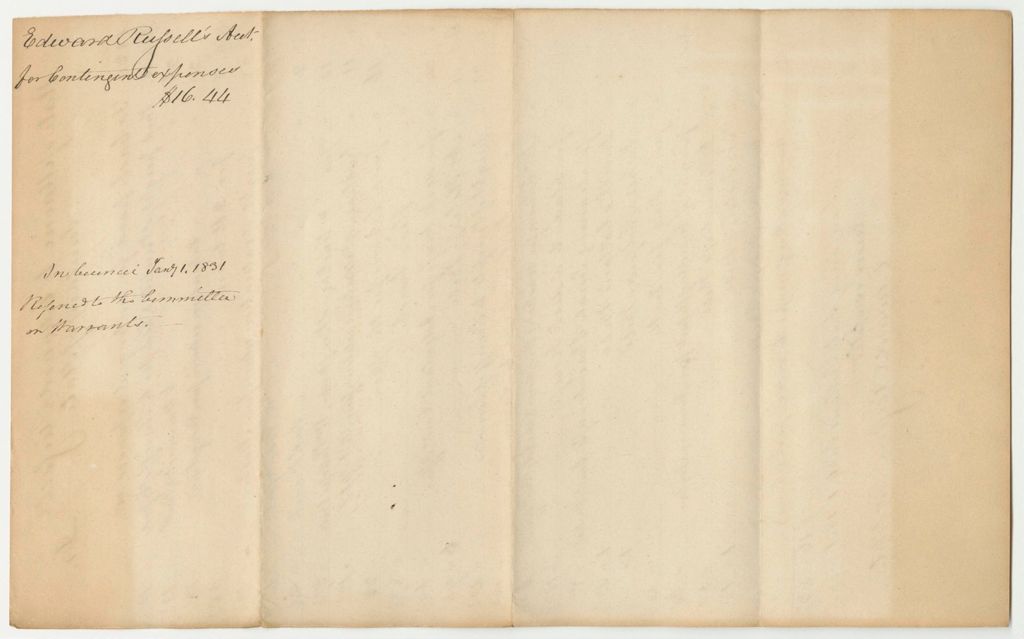 Edward Russell's Acct.
for Contingent expenses
$16.44
In Council Jany 1. 1831
Referred to the Committee
on Warrants.